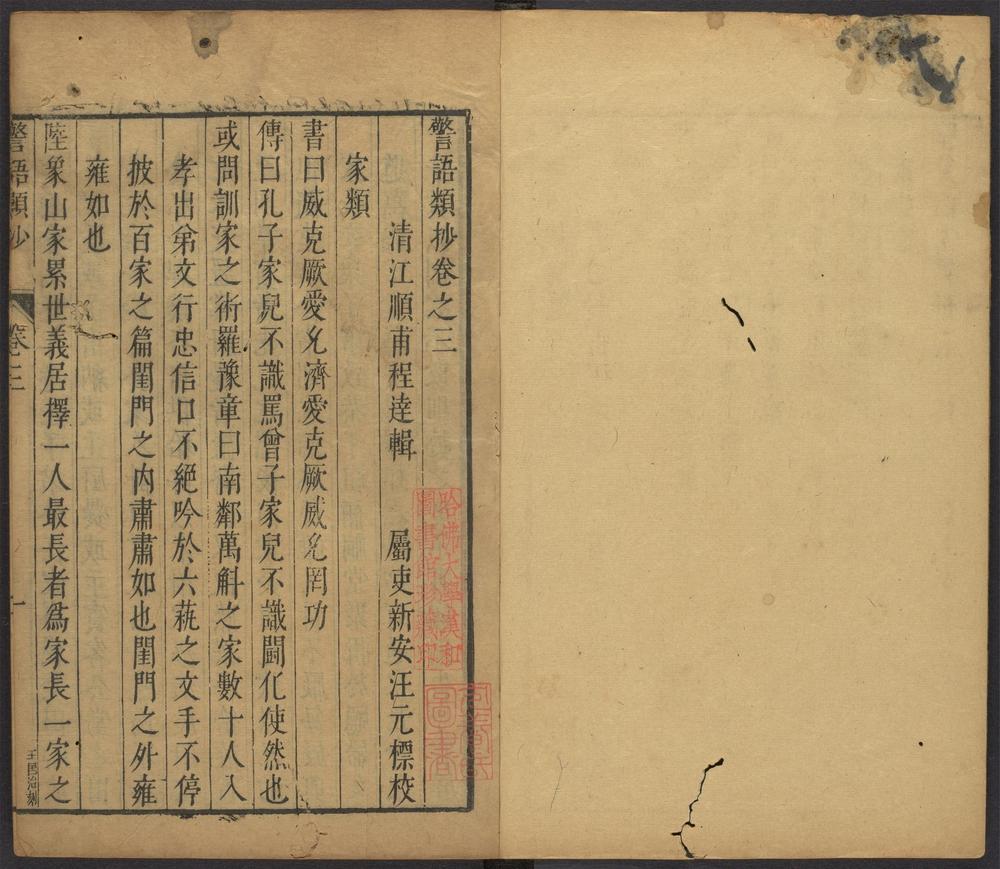 警語類抄卷之三
清江順甫程達輯 屬吏新安汪元標校
家類
書曰威克厥愛允濟愛克厥威允罔功
傳曰孔子家兒不識罵曾子家兒不識鬪化使然也
或問訓家之術羅豫章曰南鄰萬斛之家數十人入
孝出弟文行忠信口不絕吟於六蓺之文手不停
披於百家之篇閨門之內肅肅如也閨門之外雍
雍如也
陸象山家累世義居擇一人最長者爲家長一家之
警語類抄 卷三 一
哈佛大學漢和
圖書館珍藏印
圖書